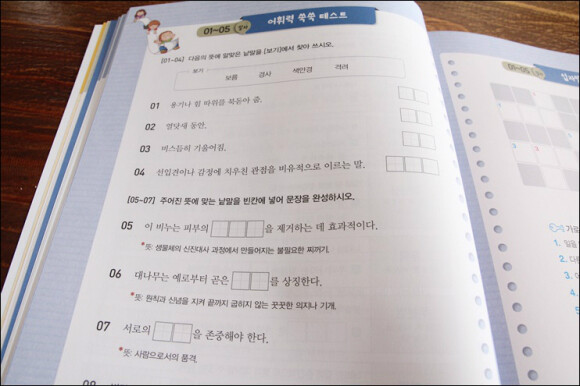 01~05 일차
어휘력 쑥쑥 테스트
[01~04] 다음의 뜻에 알맞은 낱말을 〈보기〉에서 찾아 쓰시오.
보기
보름 경사 색안경 격려
01 용기나 힘 따위를 북돋아 줌.
02 열닷새 동안.
03 비스듬히 기울어짐.
04 선입견이나 감정에 치우친 관점을 비유적으로 이르는 말.
[05~07] 주어진 뜻에 맞는 낱말을 빈칸에 넣어 문장을 완성하시오.
05 이 비누는 피부의 을 제거하는 데 효과적이다.
*뜻: 생물체의 신진대사 과정에서 만들어지는 불필요한 찌꺼기.
06 대나무는 예로부터 곧은 를 상징한다.
*뜻: 원칙과 신념을 지켜 끝까지 굽히지 않는 꿋꿋한 의지나 기개.
07 서로의 을 존중해야 한다.
*뜻: 사람으로서의 품격.
01~05
십자말
3
가로
1.
2.
3.
4.
5.